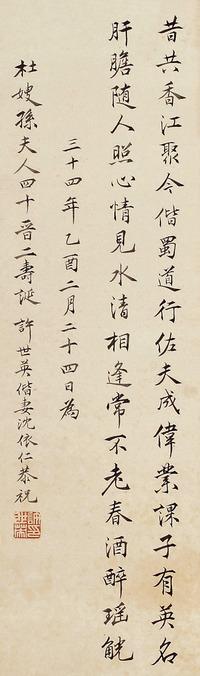 昔共香江聚今偕蜀道行佐夫成偉業課子有英名
肝膽隨人照心情見水清相逢常不老春酒醉瑶觥
三十四年乙酉二月二十四日為
杜嫂孫夫人四十晉二壽誕 許世英偕妻沈依仁恭祝